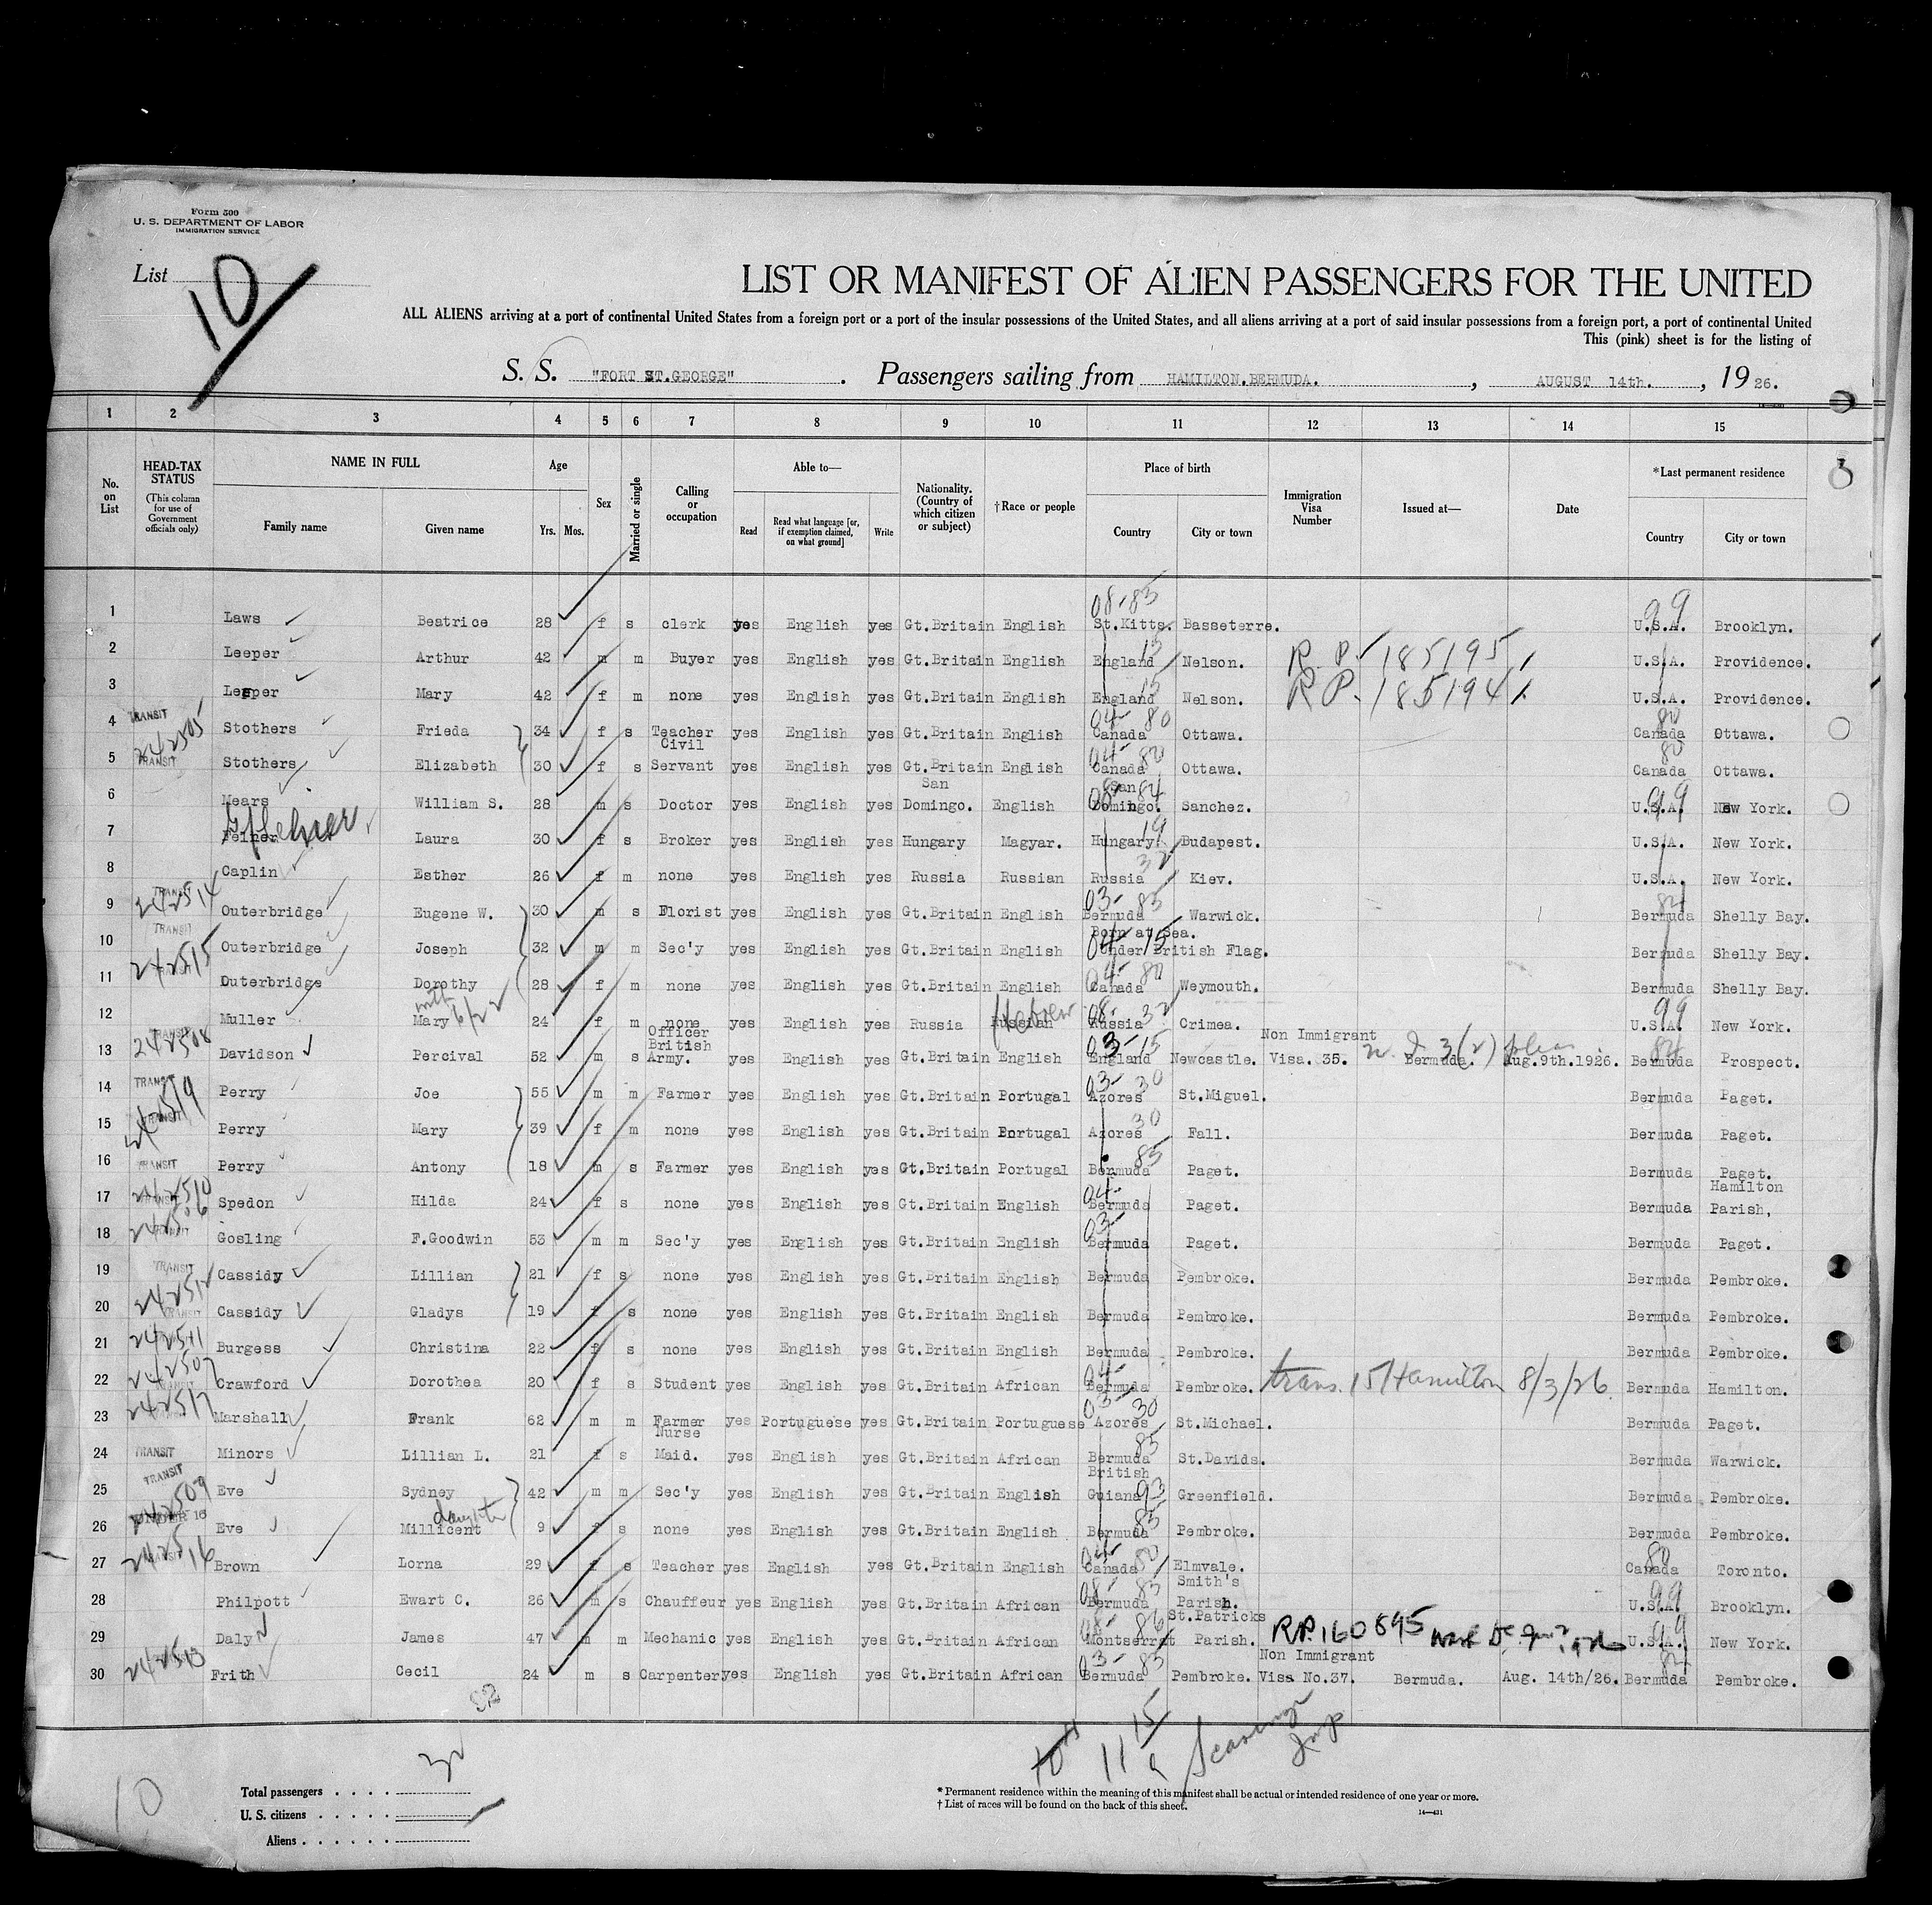 Form 500
U. S. DEPARTMENT OF LABOR
IMMIGRATION SERVICE
List 10
LIST OR MANIFEST OF ALIEN PASSENGERS FOR THE UNITED
ALL ALIENS arriving at a port of continental United States from a foreign port or a port of the insular possessions of the United States, and all aliens arriving at a port of said insular possessions from a foreign port, a port of continental United
This (pink) sheet is for the listing of
S. S. "FORT ST.GEORGE". Passengers sailing from HAMILTON.BERMUDA., AUGUST 14th., 1926.
1 2 3 4 5 6 7 8 9 10 11 12 13 14 15
No. on List HEAD-TAX STATUS (This column for use of Government officials only) NAME IN FULL Family name Given name Age Yrs. Mos. Sex Married or single Calling or occupation Able to— Read Read what language [or, if exemption claimed, on what ground] Write Nationality. (Country of which citizen or subject) †Race or people Place of birth Country City or town Immigration Visa Number Issued at— Date *Last permanent residence Country City or town
1 Laws Beatrice 28 f s clerk yes English yes Gt.Britain English 08-83 St.Kitts. Basseterre. 99 U.S.A. Brooklyn.
2 Leeper Arthur 42 m m Buyer yes English yes Gt.Britain English 15 England Nelson. R.P. 185195 U.S.A. Providence.
3 Leeper Mary 42 f m none yes English yes Gt.Britain English 15 England Nelson. R P. 185194 U.S.A. Providence.
4 TRANSIT 242505 Stothers Frieda 34 f s Teacher yes English yes Gt.Britain English 04- 80 Canada Ottawa. 80 Canada Ottawa.
5 TRANSIT Stothers Elizabeth 30 f s Civil Servant yes English yes Gt.Britain English 04- 80 Canada Ottawa. 80 Canada Ottawa.
6 Mears William S. 28 m s Doctor yes English yes San Domingo. English 08- 84 San Domingo. Sanchez. 99 U.S.A. New York.
7 Felner Laura 30 f s Broker yes English yes Hungary Magyar. 19 Hungary Budapest. U.S.A. New York.
8 Caplin Esther 26 f m none yes English yes Russia Russian 32 Russia Kiev. U.S.A. New York.
9 TRANSIT 242514 Outerbridge Eugene W. 30 m s Florist yes English yes Gt.Britain English 03- 85 Bermuda Warwick. 84 Bermuda Shelly Bay.
10 TRANSIT 242515 Outerbridge Joseph 32 m m Sec'y yes English yes Gt.Britain English 04 15 Born at Sea. Under British Flag. Bermuda Shelly Bay.
11 Outerbridge Dorothy 28 f m none yes English yes Gt.Britain English 04- 80 Canada Weymouth. Bermuda Shelly Bay.
12 Muller Mary 24 f m none yes English yes Russia Russian Hebrew 08- 32 Russia Crimea. 99 U.S.A. New York.
13 TRANSIT 242508 Davidson Percival 52 m s Officer British Army. yes English yes Gt.Britain English 03- 15 England Newcastle. Non Immigrant Visa. 35. Bermuda. Aug.9th.1926. 84 Bermuda Prospect.
14 TRANSIT Perry Joe 55 m m Farmer yes English yes Gt.Britain Portugal 03- 30 Azores St.Miguel. Bermuda Paget.
15 TRANSIT Perry Mary 39 f m none yes English yes Gt.Britain Portugal 30 Azores Fall. Bermuda Paget.
16 TRANSIT Perry Antony 18 m s Farmer yes English yes Gt.Britain Portugal 85 Bermuda Paget. Bermuda Paget.
17 242510 TRANSIT Spedon Hilda 24 f s none yes English yes Gt.Britain English 04- Bermuda Paget. Bermuda Hamilton Parish,
18 242506 TRANSIT Gosling F.Goodwin 53 m m Sec'y yes English yes Gt.Britain English 03- Bermuda Paget. Bermuda Paget.
19 TRANSIT Cassidy Lillian 21 f s none yes English yes Gt.Britain English Bermuda Pembroke. Bermuda Pembroke.
20 TRANSIT Cassidy Gladys 19 f s none yes English yes Gt.Britain English Bermuda Pembroke. Bermuda Pembroke.
21 242511 Burgess Christina 22 f s none yes English yes Gt.Britain English Bermuda Pembroke. Bermuda Pembroke.
22 242507 TRANSIT Crawford Dorothea 20 f s Student yes English yes Gt.Britain African 04- Bermuda Pembroke. trans. 15 Hamilton 8/3/26 Bermuda Hamilton.
23 242517 Marshall Frank 62 m m Farmer yes Portuguese yes Gt.Britain Portuguese 03- 30 Azores St.Michael. Bermuda Paget.
24 TRANSIT Minors Lillian L. 21 f s Nurse Maid. yes English yes Gt.Britain African 85 Bermuda St.Davids. Bermuda Warwick.
25 TRANSIT 242509 Eve Sydney 42 m m Sec'y yes English yes Gt.Britain English British Guiana 93 Greenfield. Bermuda Pembroke.
26 UNDER 16 Eve Millicent daught 9 f s none yes English yes Gt.Britain English 85 Bermuda Pembroke. Bermuda Pembroke.
27 242516 TRANSIT Brown Lorna 29 f s Teacher yes English yes Gt.Britain English 04- 80 Canada Elmvale. 80 Canada Toronto.
28 Philpott Ewart C. 26 m s Chauffeur yes English yes Gt.Britain African 08- 83 Bermuda Smith's Parish. 99 U.S.A. Brooklyn.
29 Daly James 47 m m Mechanic yes English yes Gt.Britain African 08- 86 Montserrat St.Patricks Parish. R.P. 160895 99 U.S.A. New York.
30 242513 Frith Cecil 24 m s Carpenter yes English yes Gt.Britain African 03- 83 Bermuda Pembroke. Non Immigrant Visa No.37. Bermuda. Aug. 14th/26. 84 Bermuda Pembroke.
10
Total passengers . . . .
U. S. citizens . . . . .
Aliens . . . . . .
* Permanent residence within the meaning of this manifest shall be actual or intended residence of one year or more.
† List of races will be found on the back of this sheet.
14—431